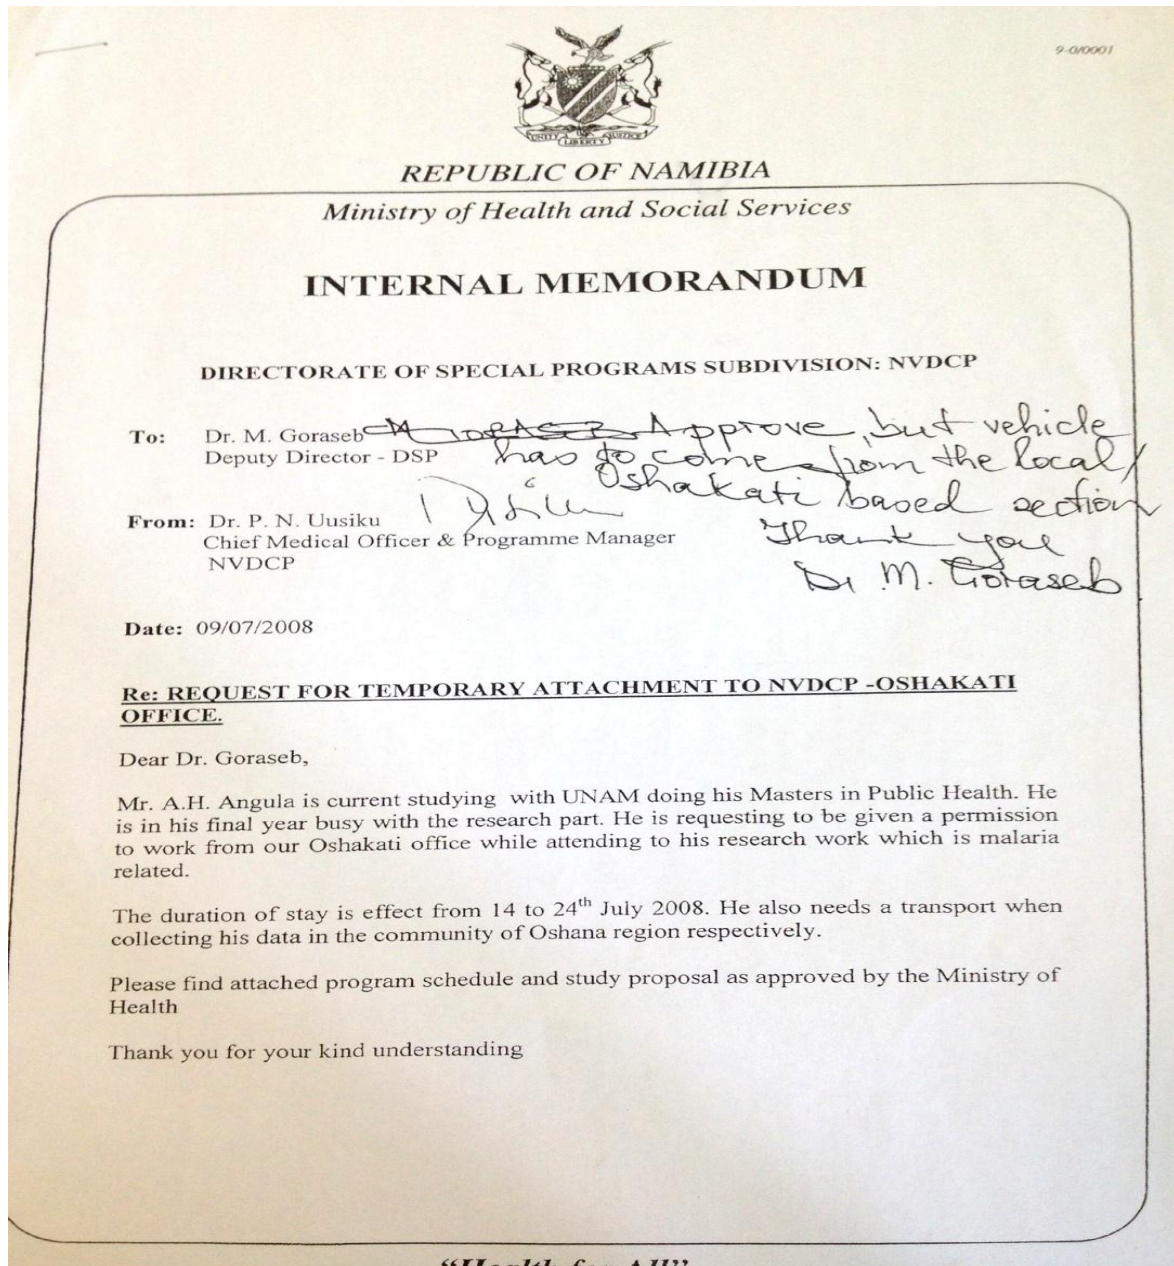 9-0/0001
UNITY LIBERTY JUSTICE
REPUBLIC OF NAMIBIA
Ministry of Health and Social Services
INTERNAL MEMORANDUM
DIRECTORATE OF SPECIAL PROGRAMS SUBDIVISION: NVDCP
To: Dr. M. Goraseb Approve, but vehicle
Deputy Director - DSP has to come from the local/
Oshakati based section
From: Dr. P. N. Uusiku
Chief Medical Officer & Programme Manager Thank you
NVDCP Dr M. Goraseb
Date: 09/07/2008
Re: REQUEST FOR TEMPORARY ATTACHMENT TO NVDCP -OSHAKATI
OFFICE.
Dear Dr. Goraseb,
Mr. A.H. Angula is current studying with UNAM doing his Masters in Public Health. He
is in his final year busy with the research part. He is requesting to be given a permission
to work from our Oshakati office while attending to his research work which is malaria
related.
The duration of stay is effect from 14 to 24th July 2008. He also needs a transport when
collecting his data in the community of Oshana region respectively.
Please find attached program schedule and study proposal as approved by the Ministry of
Health
Thank you for your kind understanding
"Health for All"